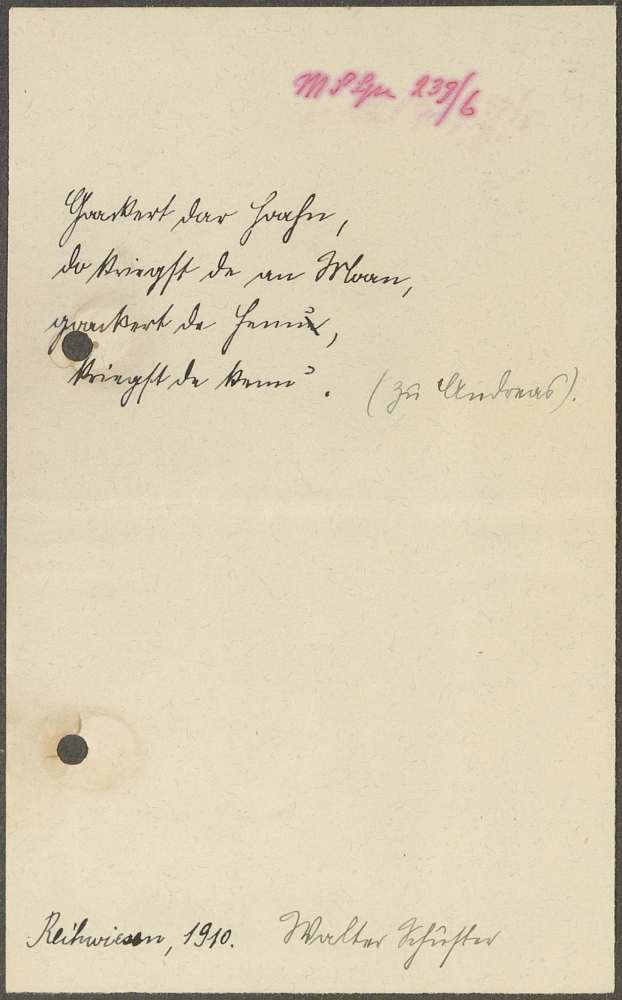 M S Gr. 239/6
Gackert dar Hoahn,
do kriegst de an Moan,
gackert de Henn,
kriegst de kenn.
(zu Andreas).
Reihwiesen, 1910. Walter Schuster